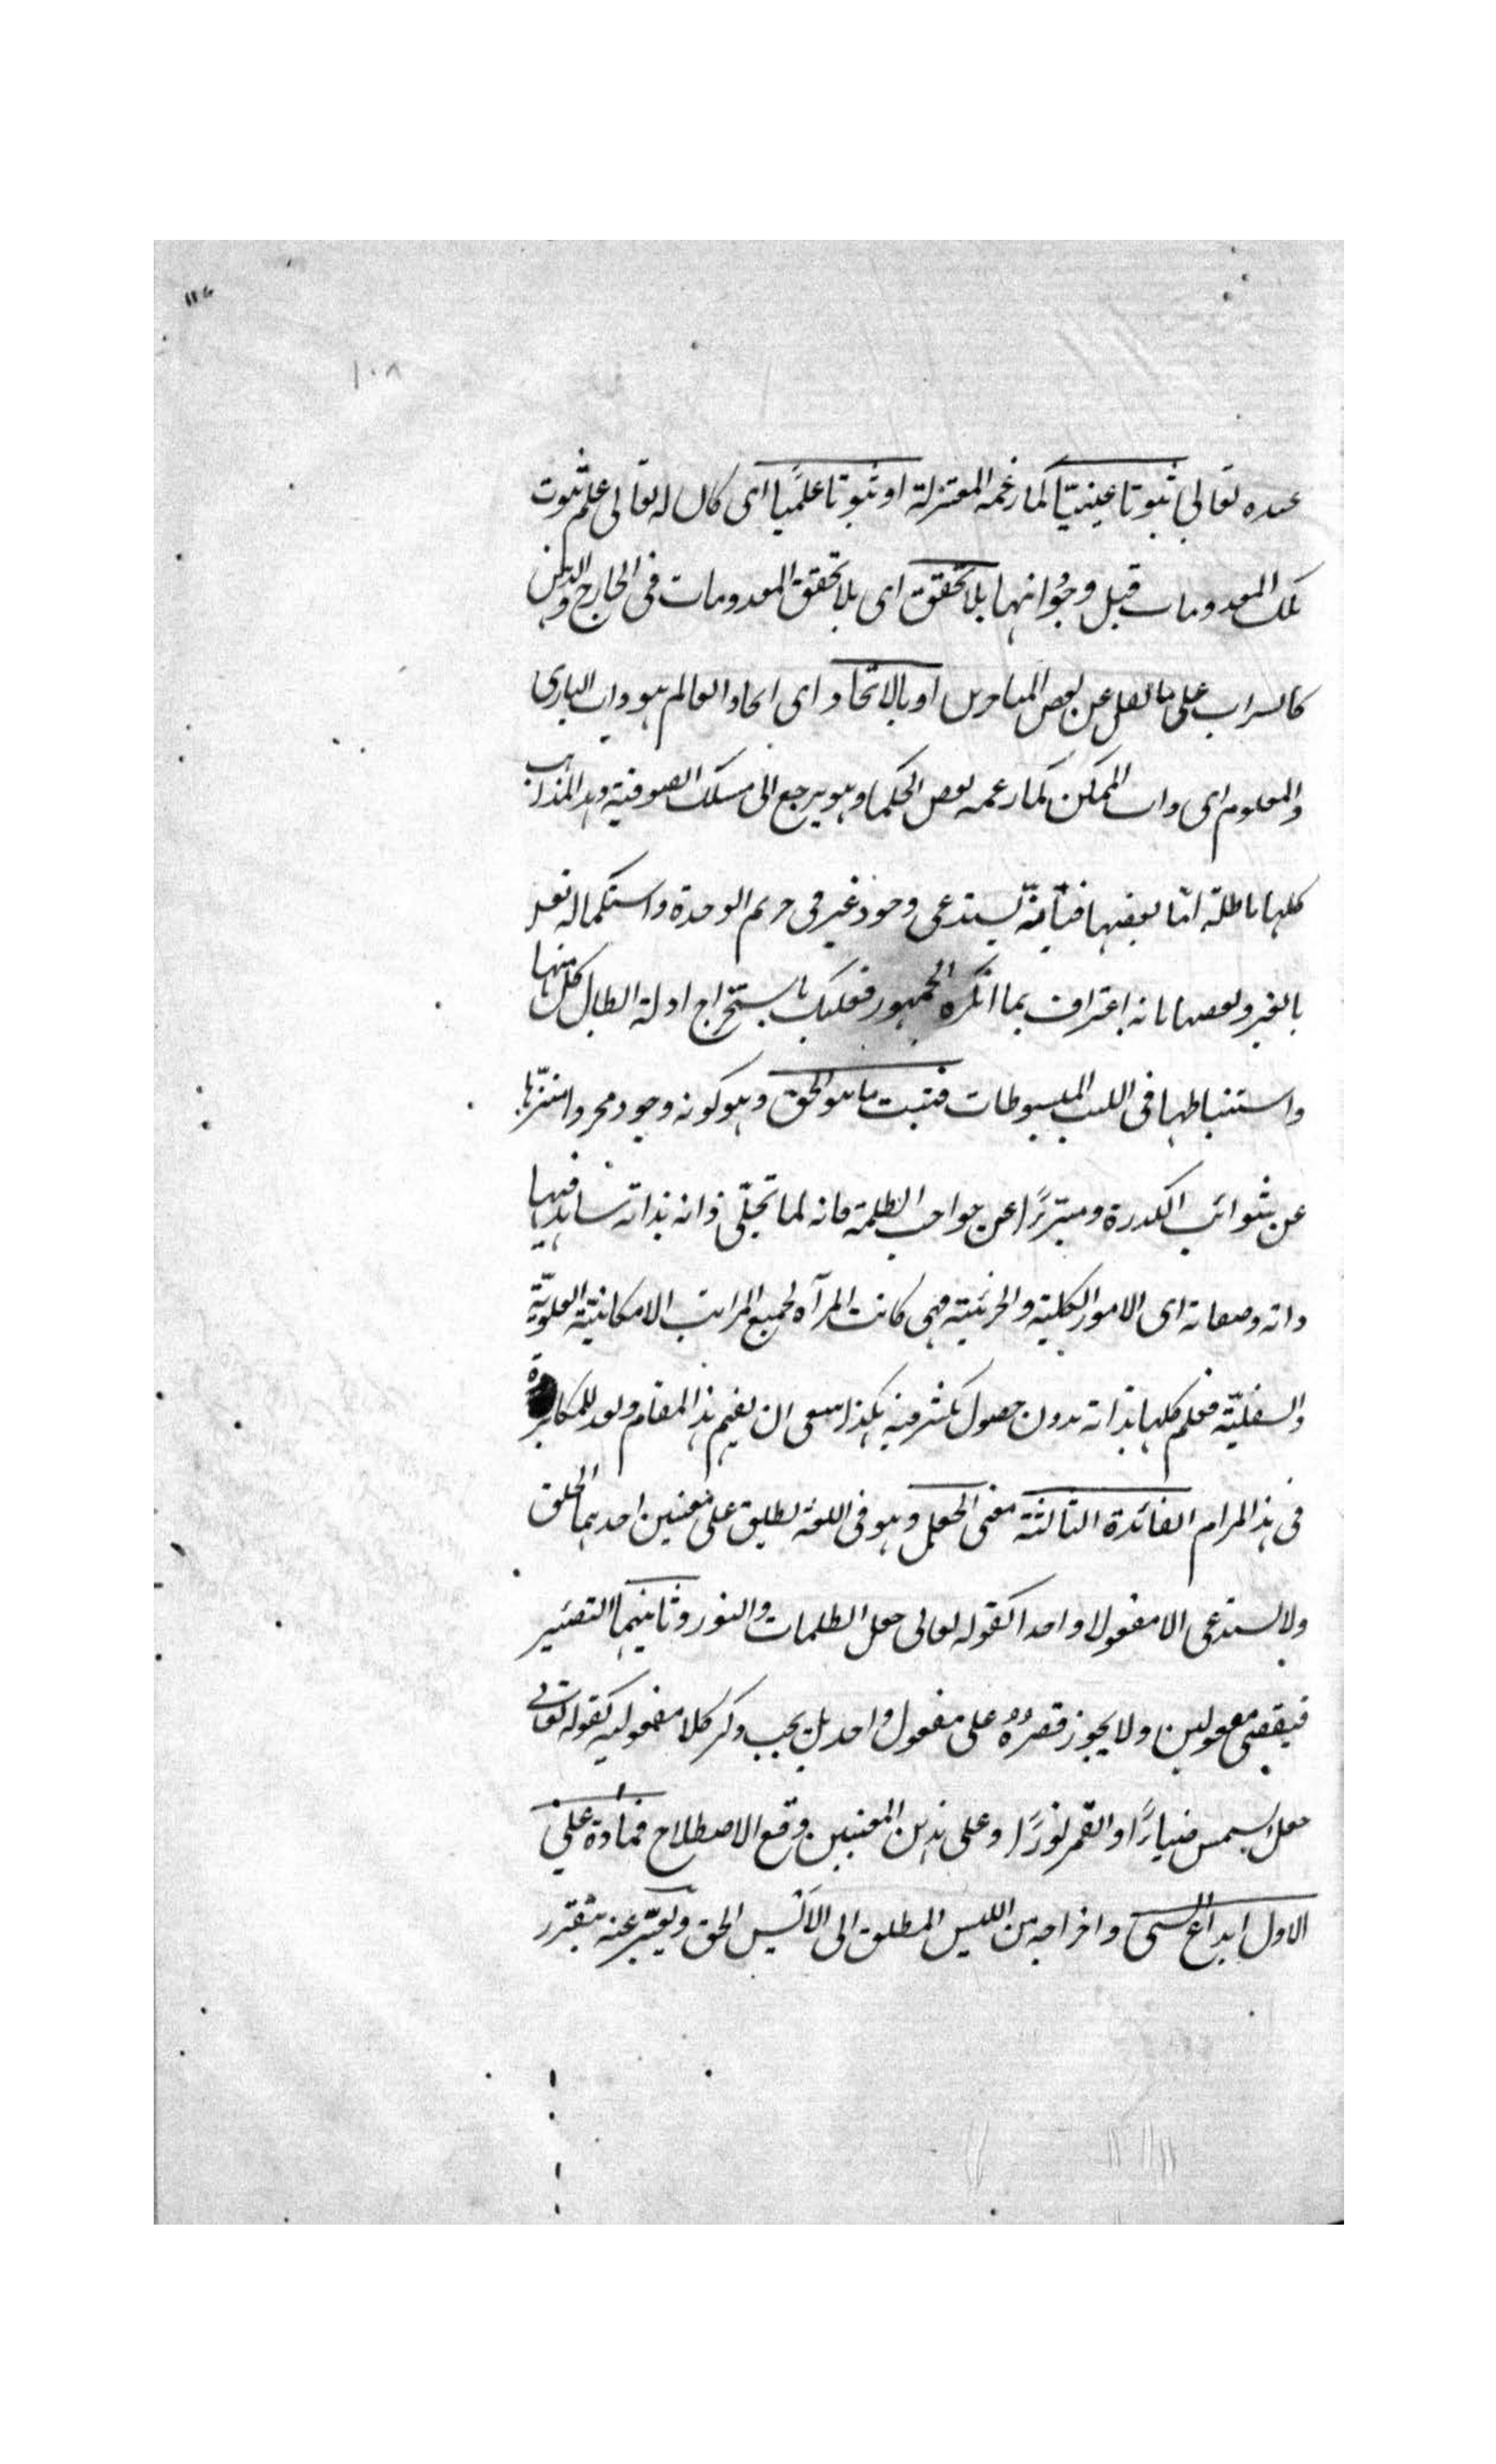 ١٠٨
عنده تعالى ثبوتا عينيّا كما زعمه المعتزلة او ثبوتا علميا اى كان له تعالى علم ثبوت
تلك المعدومات قبل وجوداتها بلا تحقق اى بلا تحقق المعدومات فى الخارج والذهن
كالسراب على ما نقل عن بعض او بالاتحاد اى اتحاد العالم هو ذات البارى
والمعلوم اى ذات الممكن كما زعمه بعض الحكماء وهو يرجع الى مسلك الصوفية وهذه المذاهب
كلها باطلة امّا بعضها فبأنه يستدعى وجود غير فى حريم الوحدة واستكماله تعالى
بالغير وبعضها بانه اعتراف بما انكره الجمهور فعليك باستخراج ادلة ابطال كل منها
واستنباطها فى الكتب المبسوطات فثبت ما هو الحق وهو كونه وجود مجردا منزّها
عن شوائب الكدرة ومتبرّزًا عن الظلمة فانه لما تجلّى ذاته بذاته شاهد فيها
ذاته وصفاته اى الامور الكلية والجزئية فهى كانت المرآة لجميع المراتب الامكانيّة العلويّة
والسفليّة فعلم كلها بذاته بدون حصول تكثر فيه هكذا ينبغى ان يفهم هذا المقام للمكابرة
فى هذا المرام الفائدة الثالثة معنى الجعل وهو فى اللغة يطلق على معنيين احدهما الخلق
ولا يستدعى الا مفعولا واحدا كقوله تعالى جعل الظلمات والنور وثانيهما التصيير
فيقتضى مفعولين ولا يجوز قصره على مفعول واحد بل يجب ذكر كلا مفعوليه كقوله تعالى
جعل الشمس ضياءً والقمر نورًا وعلى هذين المعنيين وقع الاصطلاح فمفاده على
الاول ابداع الشىء واخراجه من الليس المطلق الى الأيس الحق ويعبّر عنه بتقرر